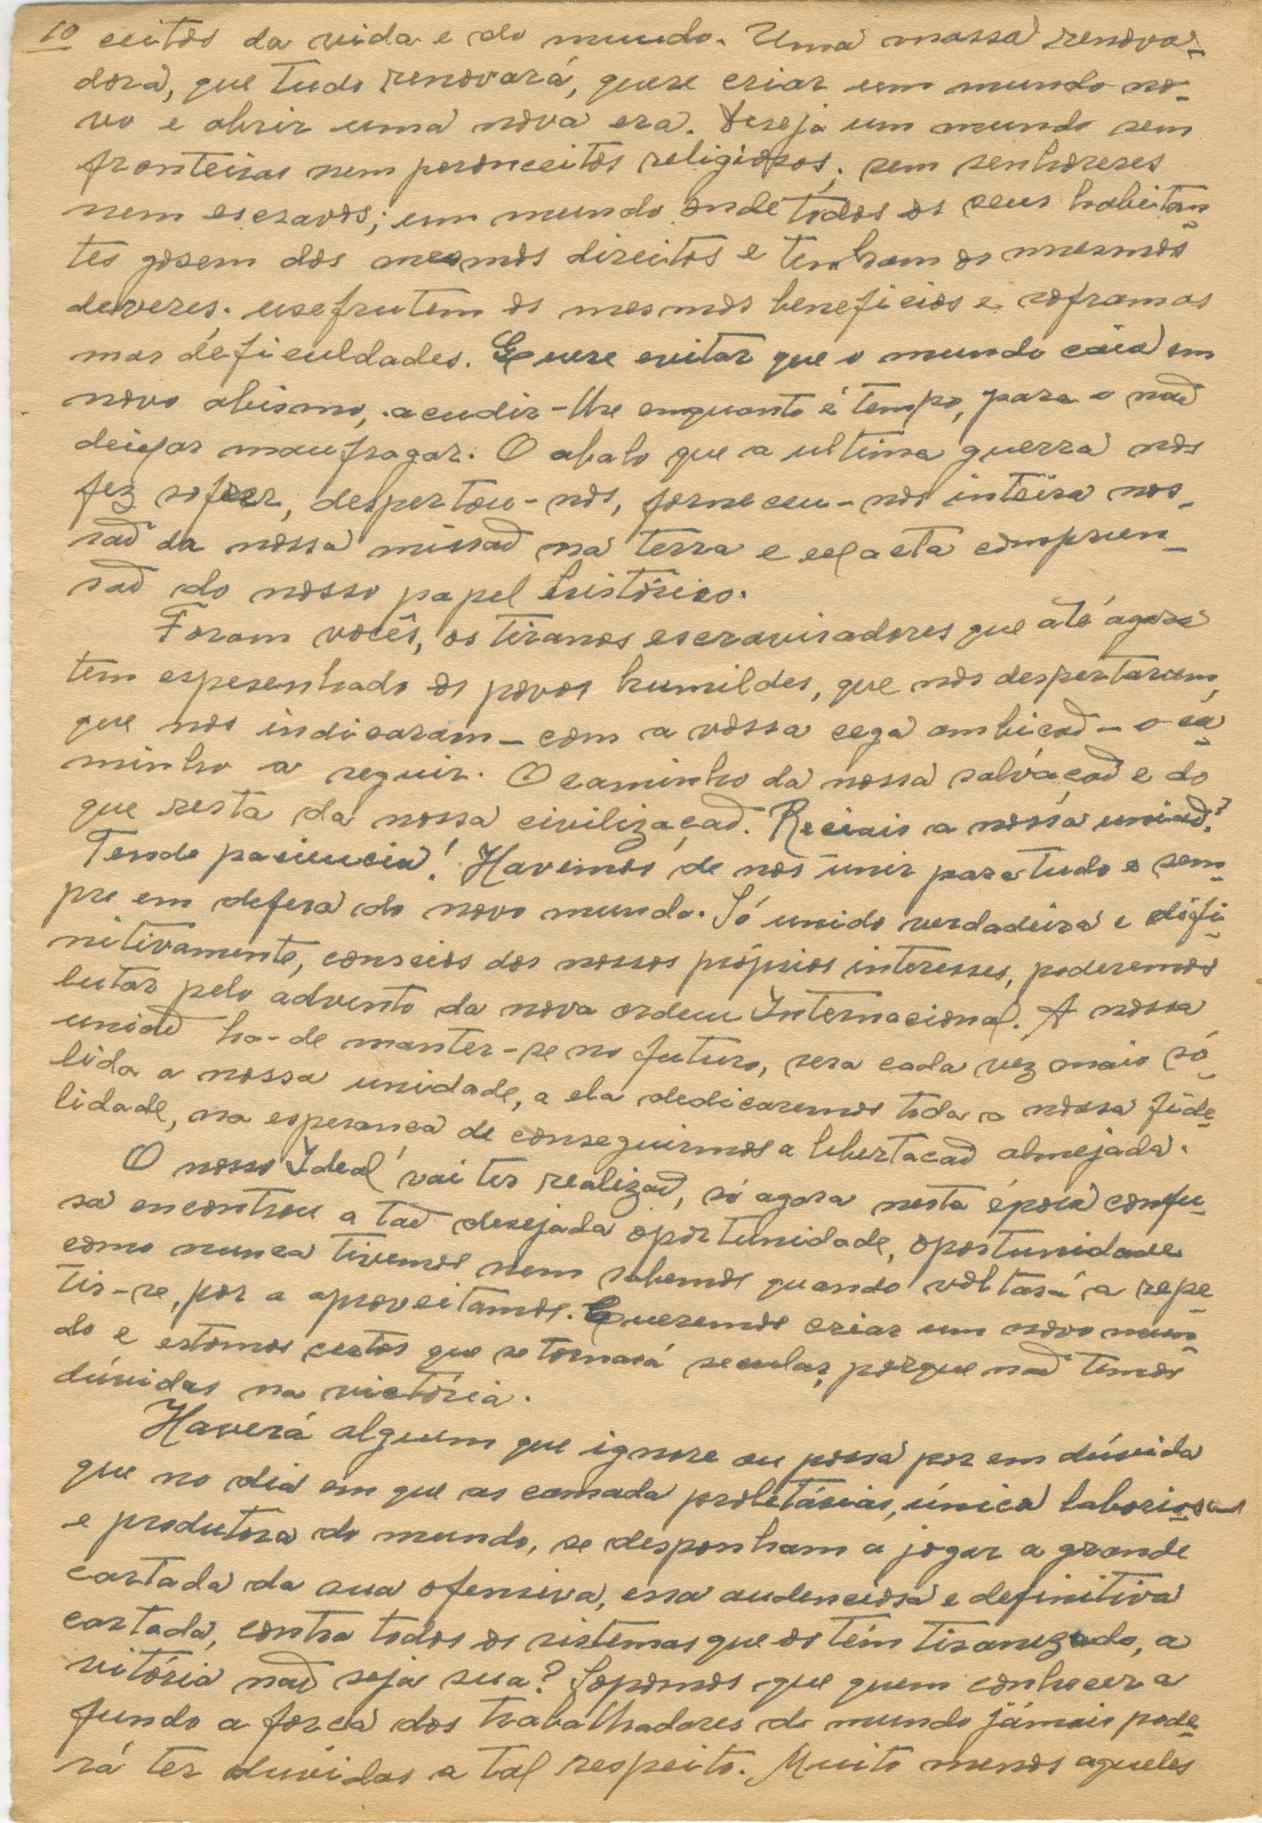 10 ceitos da vida e do mundo. Uma massa renova-
dora, que tudo renovará, quere criar um mundo no-
vo e abrir uma nova era. Deseja um mundo sem
fronteiras nem perconceitos religiosos; sem senhoreres
nem escravos; um mundo onde todos os seus habitan-
tes gosem dos mesmos direitos e tenham os mesmos
deveres; usefrutem os mesmos beneficios e soframas
mas deficuldades. Quere evitar que o mundo caia em
novo abismo, acudir-lhe enquanto é tempo, para o naõ
deixar maufragar. O abalo que a ultima guerra nos
fez sofrer, despertou-nos, forneceu-nos inteira nos-
saõ da nossa missaõ na terra e exacta comprien-
saõ do nosso papel histórico.
Foram vocês, os tiranos escravisadores que até agora
tem espesenhado os povos humildes, que nos despertaram,
que nos indicaram - com a vossa cega ambicaõ - o ca-
minho a seguir. O caminho da nossa salvaçaõ e do
que resta da nossa civilizaçaõ. Reciais a nossa uniaõ?
Tende paciencia! Havemos de nos unir para tudo e sem-
pre em defesa do novo mundo. Só unido verdadeira e difi-
nitivamente, conscios dos nossos próprios interesses, poderemos
lutar pelo advento da nova ordem Internacional. A nossa
unidõ ha-de manter-se no futuro, sera cada vez mais só-
lida a nossa unidade, a ela dedicaremos toda a nossa fide-
lidade, na esperança de conseguirmos a libertacaõ almejada.
O nosso Ideal vai ter realizaõ, só agora nesta época confu-
sa encontrou a taõ desejada oportunidade, oportunidade
como nunca tivemos nem sabemos quando voltará a repe-
tir-se, por a aproveitamos. Queremos criar um novo mun-
do e estamos certos que se tornará secular, porque naõ temos
dúvidas na victória.
Haverá alguem que ignore ou possa por em dúvida
que no dia em que as camada proletárias, única laboriosa
e produtora do mundo, se desponham a jogar a grande
cartada da sua ofensiva, essa audenciosa e definitiva
cartada, contra todos os sistemas que os têm tiranizado, a
vitória naõ seja sua? Sopomos que quem conhecer a
fundo a força dos trabalhadores do mundo jámais pode-
rá ter duvidas a tal respeito. Muito menos aqueles